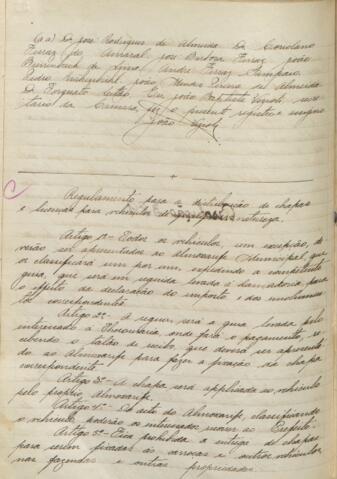 (aa) Dr José Rodrigues de Almeida Dr Coriolano
Ferraz do Amaral, José Barboza Ferraz, João
de Lima, André Ferraz Sampaio,
Pedro João Mendes Pereira de Almeida
Dr Torquato Leitão. Eu, João Baptista secre-
tario da Camara, fiz o presente registro e assigno
João
Regulamento para a distribuição de chapas
e licenças para vehiculos de natureza.
Artigo 1º Todos os vehiculos, sem excepção, de-
verão ser apresentados ao Almoxarife Municipal, que
os classificará um por um, expedindo a competente
guia, que será em seguida levada á Lançadoria para
o effeito da declaração do imposto e dos emolumen-
tos correspondentes.
Artigo 2º A seguir será a guia levada pelo
interessado á Thesouraria onde fará o pagamento, re-
cebendo o talão de recibo, que deverá ser apresenta-
do ao Almoxarife para fazer a fixação da chapa
correspondente.
Artigo 3º A chapa será applicada ao vehiculo
pelo proprio Almoxarife.
Artigo 4º Do acto do Almoxarife, classificando
o vehiculo, poderão os interessados recorrer ao Prefeito.
Artigo 5º Fica prohibida a entrega de chapas
para serem fixadas ás carroças e outros vehiculos
nas fazendas e outras propriedades.